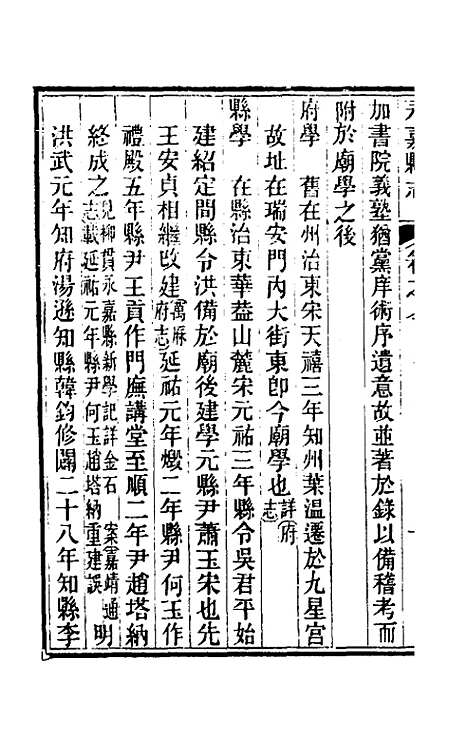 永嘉縣志 卷之七
加書院義塾猶黨庠術序遺意故並著於錄以備稽考而
附於廟學之後
府學 舊在州治東宋天禧三年知州葉溫遷於九星宮
故址在瑞安門內大街東卽今廟學也詳府志
縣學 在縣治東華葢山麓宋元祐三年縣令吳君平始
建紹定間縣令洪備於廟後建學元縣尹蕭玉宋也先
王安貞相繼改建萬厤府志延祐元年燬二年縣尹何玉作
禮殿五年縣尹王貢作門廡講堂至順二年尹趙塔納
終成之見柳貫永嘉縣新學記詳金石 案嘉靖通志載延祐元年縣尹何玉趙塔納重建誤 明
洪武元年知府湯遜知縣韓鈞修闢二十八年知縣李